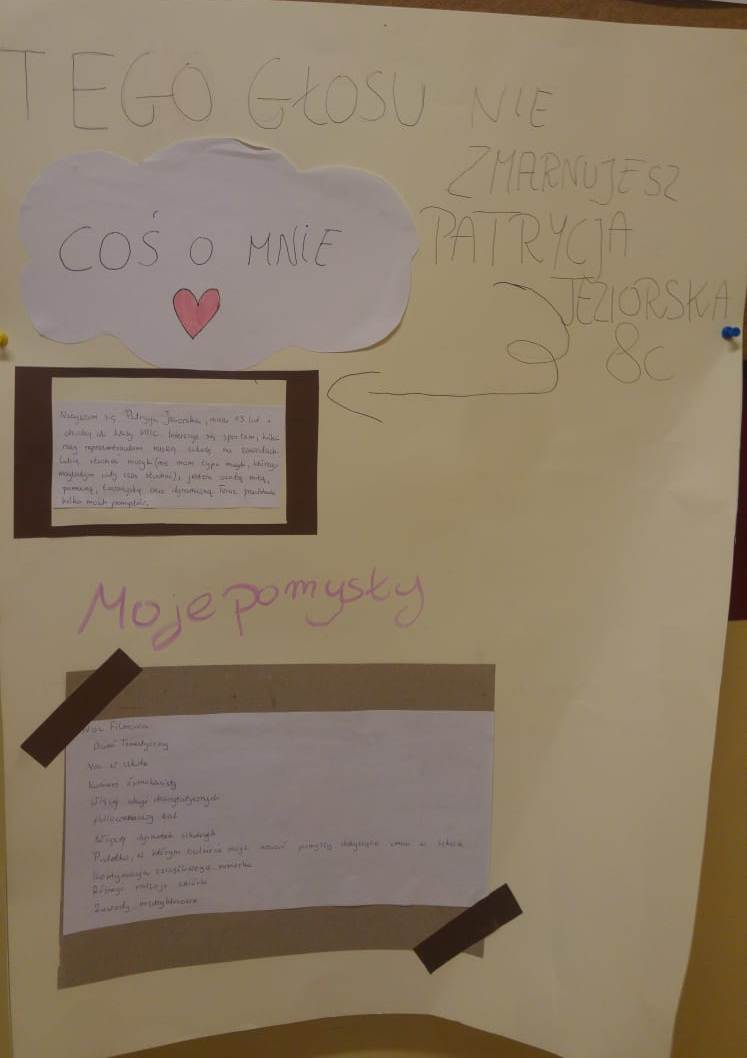 TEGO GŁOSU NIE
ZMARNUJESZ
PATRYCJA
JEZIORSKA
8c
COŚ O MNIE
Nazywam się Patrycja Jeziorska, mam 13 lat i
chodzę do klasy VIIIc. Interesuję się sportem, kilka
razy reprezentowałam naszą szkołę na zawodach.
Lubię słuchać muzyki (nie mam typu muzyki, którego
mogłabym cały czas słuchać), jestem osobą miłą,
pomocną, towarzyską oraz dynamiczną. Teraz przedstawię
kilka moich pomysłów.
Moje pomysły
Noc Filmowa
Dzień Tematyczny
w szkole
Kiermasz
Więcej akcji charytatywnych
bal
Więcej dyskotek szkolnych
Pudełko, w którym będziecie mogli wrzucać pomysły dotyczące zmian w szkole
Kontynuacja szczęśliwego numerka
Różnego rodzaju zbiórki
Zawody międzyklasowe